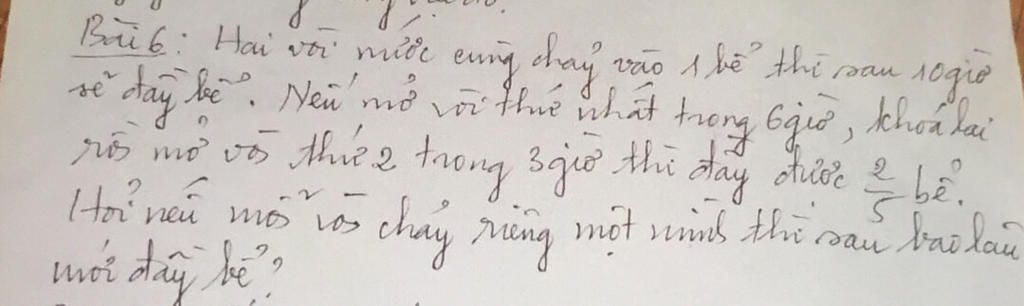 Bài 6: Hai vòi nước cùng chảy vào 1 bể thì sau 10 giờ
sẽ đầy bể. Nếu mở vòi thứ nhất trong 6 giờ, khoá lại
rồi mở vòi thứ 2 trong 3 giờ thì đầy được 2/5 bể.
Hỏi nếu mỗi vòi chảy riêng một mình thì sau bao lâu
mới đầy bể?